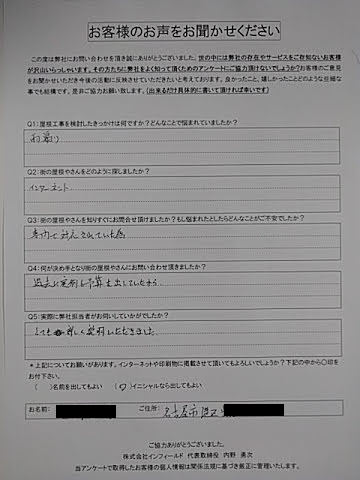 お客様のお声をお聞かせください
この度は弊社にお問い合わせを頂き誠にありがとうございました。世の中には弊社の存在やサービスをご存知ないお客様
が沢山いらっしゃいます。その方たちに弊社をよく知って頂くためのアンケートにご協力頂けないでしょうか？お客様のご意見
をお聞かせいただき今後の活動に反映させていただきたいと考えております。良かったこと、嬉しかったことどのような些細な
事でも結構です。是非ご協力お願い致します。（出来るだけ具体的に書いて頂ければ幸いです）
Q1：屋根工事を検討したきっかけは何ですか？どんなことで悩まれていましたか？
雨漏り
Q2：街の屋根やさんをどのように探しましたか？
インターネット
Q3：街の屋根やさんを知りすぐにお問合せ頂けましたか？もし悩まれたとしたらどんなことがご不安でしたか？
Q4：何が決め手となり街の屋根やさんにお問い合わせ頂きましたか？
Q5：実際に弊社担当者がお伺いしていかがでしたか？
とても詳しく説明いただきました。
＊上記についてお願いがあります。インターネットや印刷物に掲載させて頂いてもよろしいでしょうか？下記の中から〇印を
お付下さい。
（　）名前を出してもよい　（〇）イニシャルなら出してもよい
お名前：　ご住所：名古屋市
ご協力ありがとうございました。
株式会社インフィールド　代表取締役　内野　勇次
当アンケートで取得したお客様の個人情報は関係法規に基づき厳正に管理いたします。